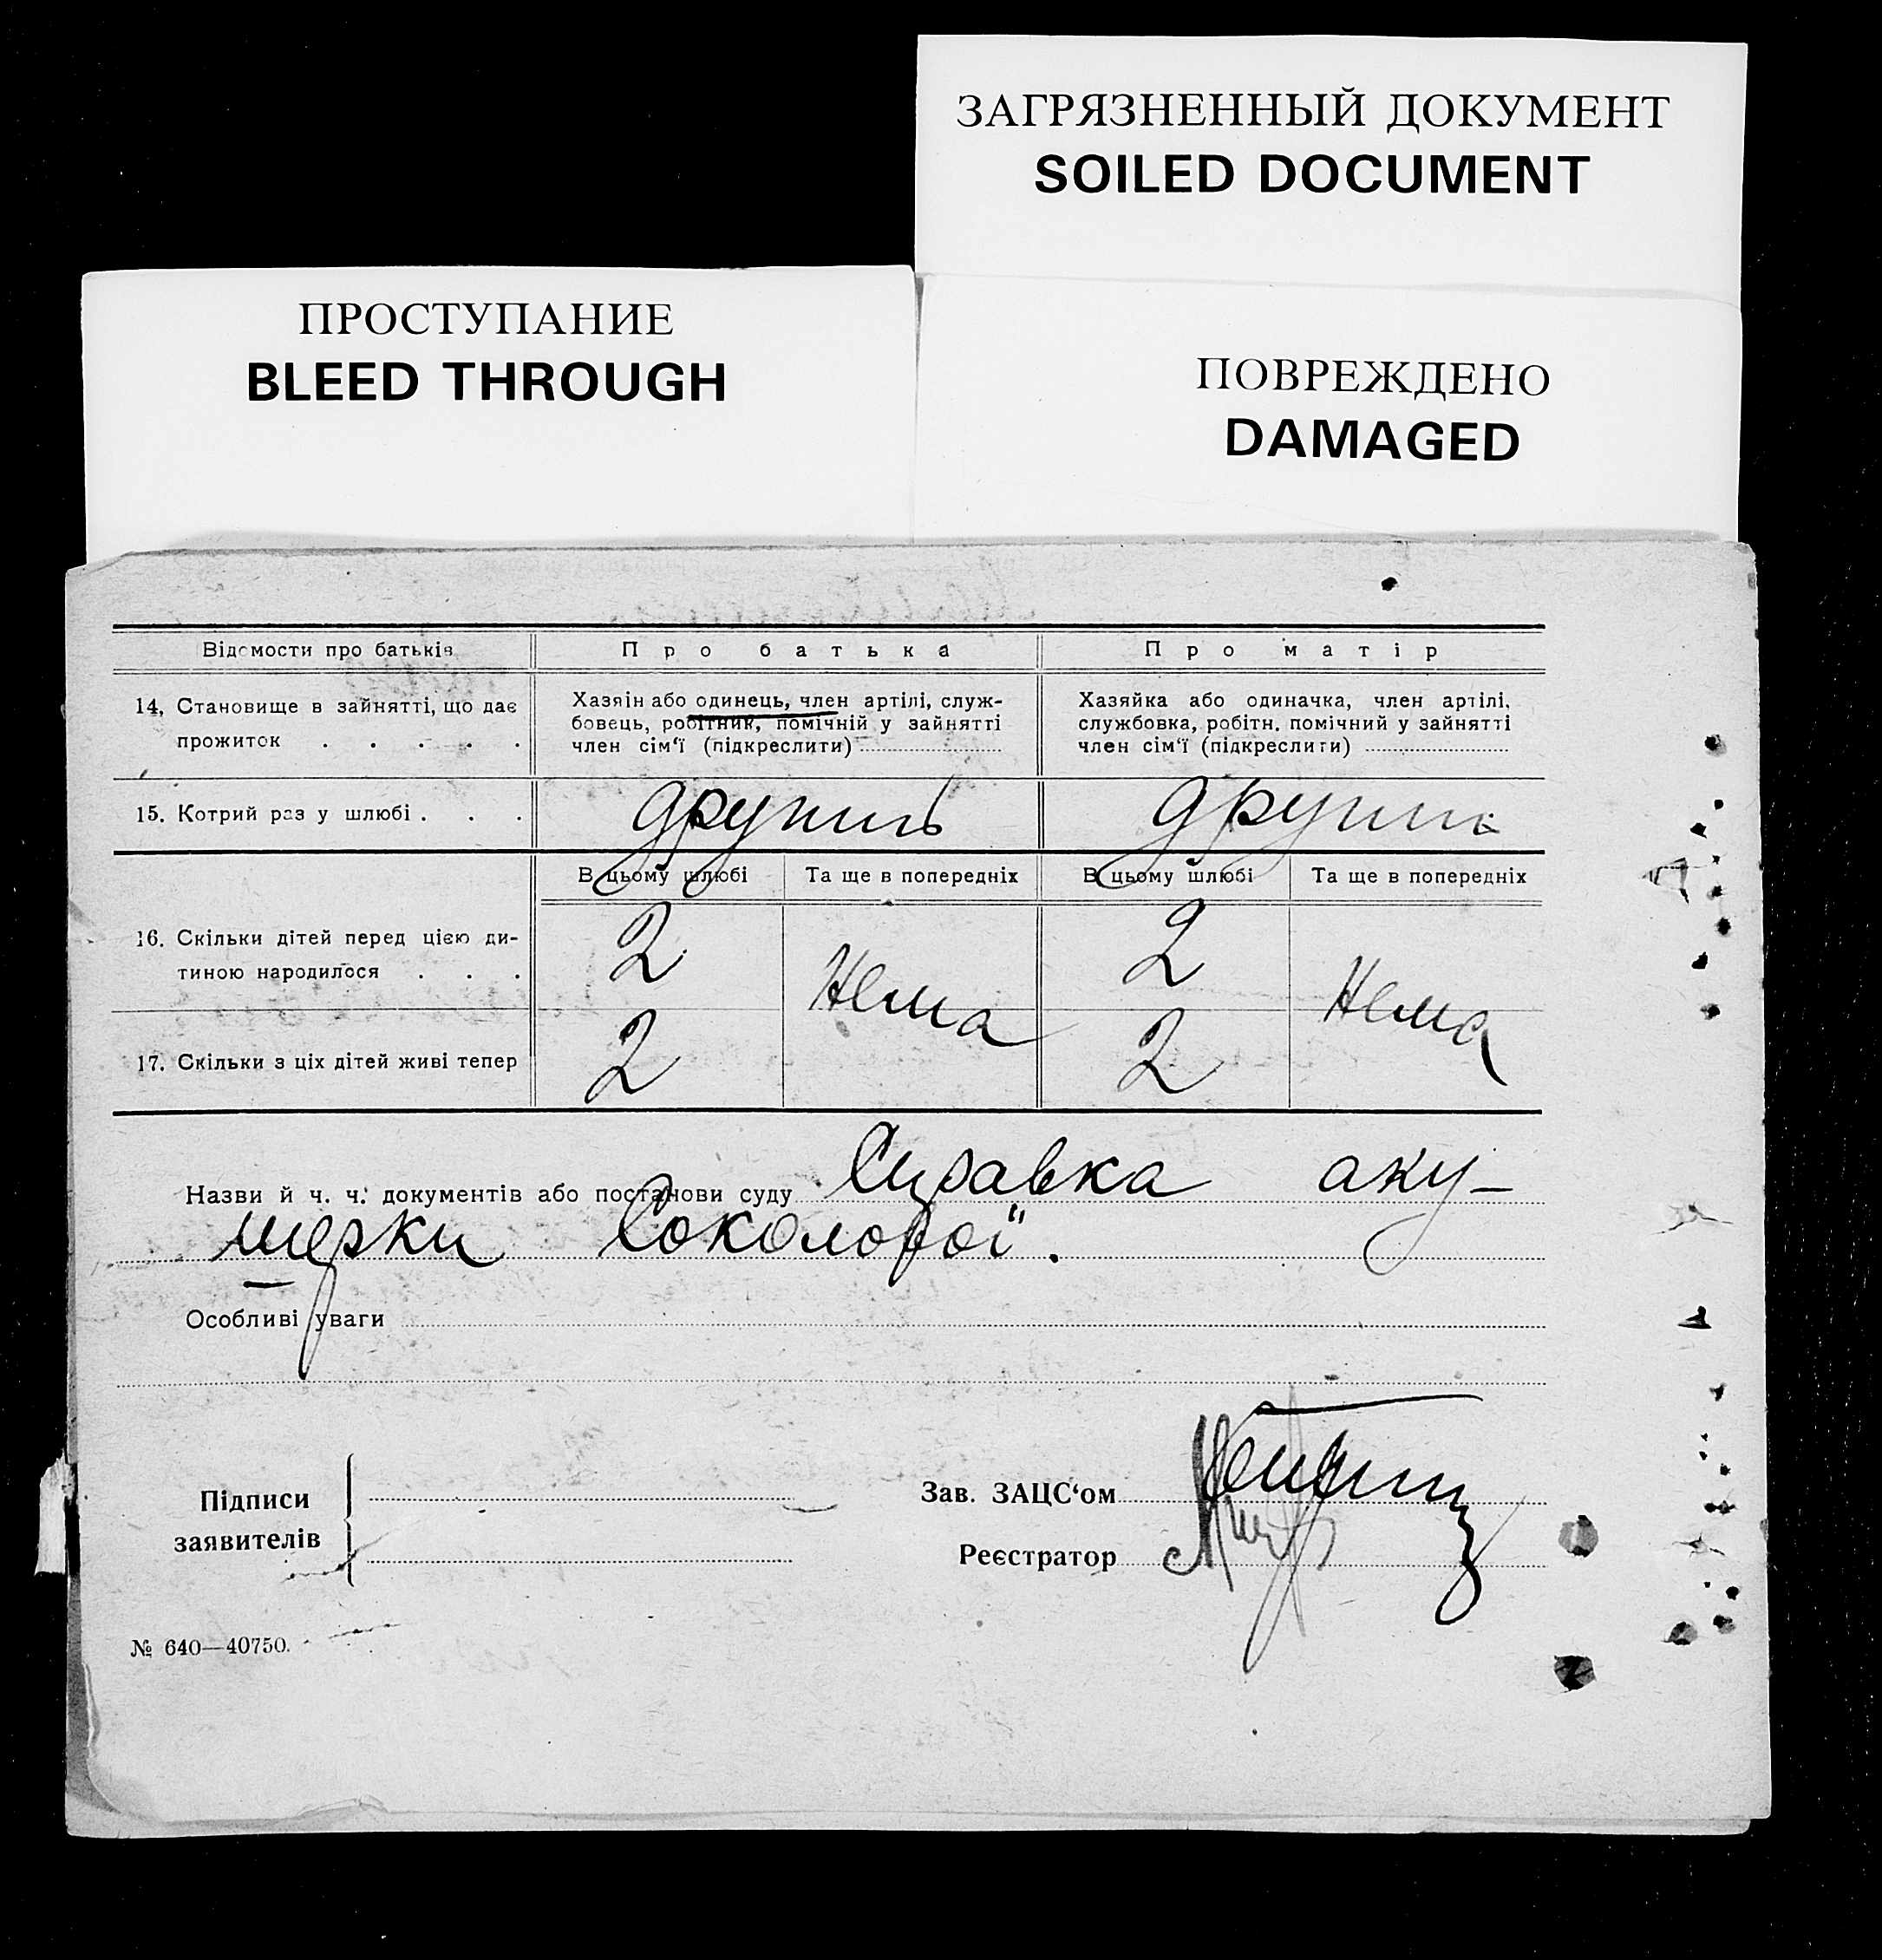 ЗАГРЯЗНЕННЫЙ ДОКУМЕНТ
SOILED DOCUMENT
ПРОСТУПАНИЕ
BLEED THROUGH
ПОВРЕЖДЕНО
DAMAGED
Відомости про батьків
Про батька
Про матір
14. Становище в зайнятті, що дає
прожиток . . . . .
Хазяін або одинець, член артілі, служ-
бовець, робітник, помічній у зайнятті
член сім'ї (підкреслити)
Хазяйка або одиначка, член артілі,
службовка, робітн. помічний у зайнятті
член сім'ї (підкреслити)
15. Котрий раз у шлюбі . . .
В цьому шлюбі
Та ще в попередніх
В цьому шлюбі
Та ще в попередніх
16. Скільки дітей перед цією ди-
тиною народилося . . .
2
Нема
2
Нема
17. Скільки з ціх дітей живі тепер
2
2
Назви й ч. ч. документів або постанови суду Справка аку-
шерки Соколової.
Особливі уваги
Підписи
заявителів
Зав. ЗАЦС'ом
Реєстратор
№ 640—40750.